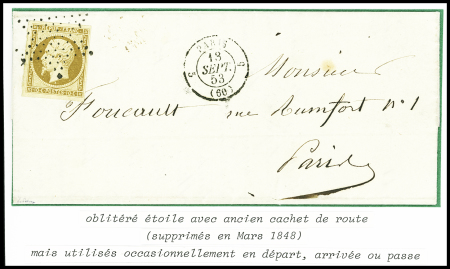 PARIS
5 6
13
SEPT.
53
(60)
10 c POSTES 10 c
Monsieur
Foucault rue Rumfort n° 1
Paris
oblitéré étoile avec ancien cachet de route
(supprimés en Mars 1848)
mais utilisés occasionnellement en départ, arrivée ou passe